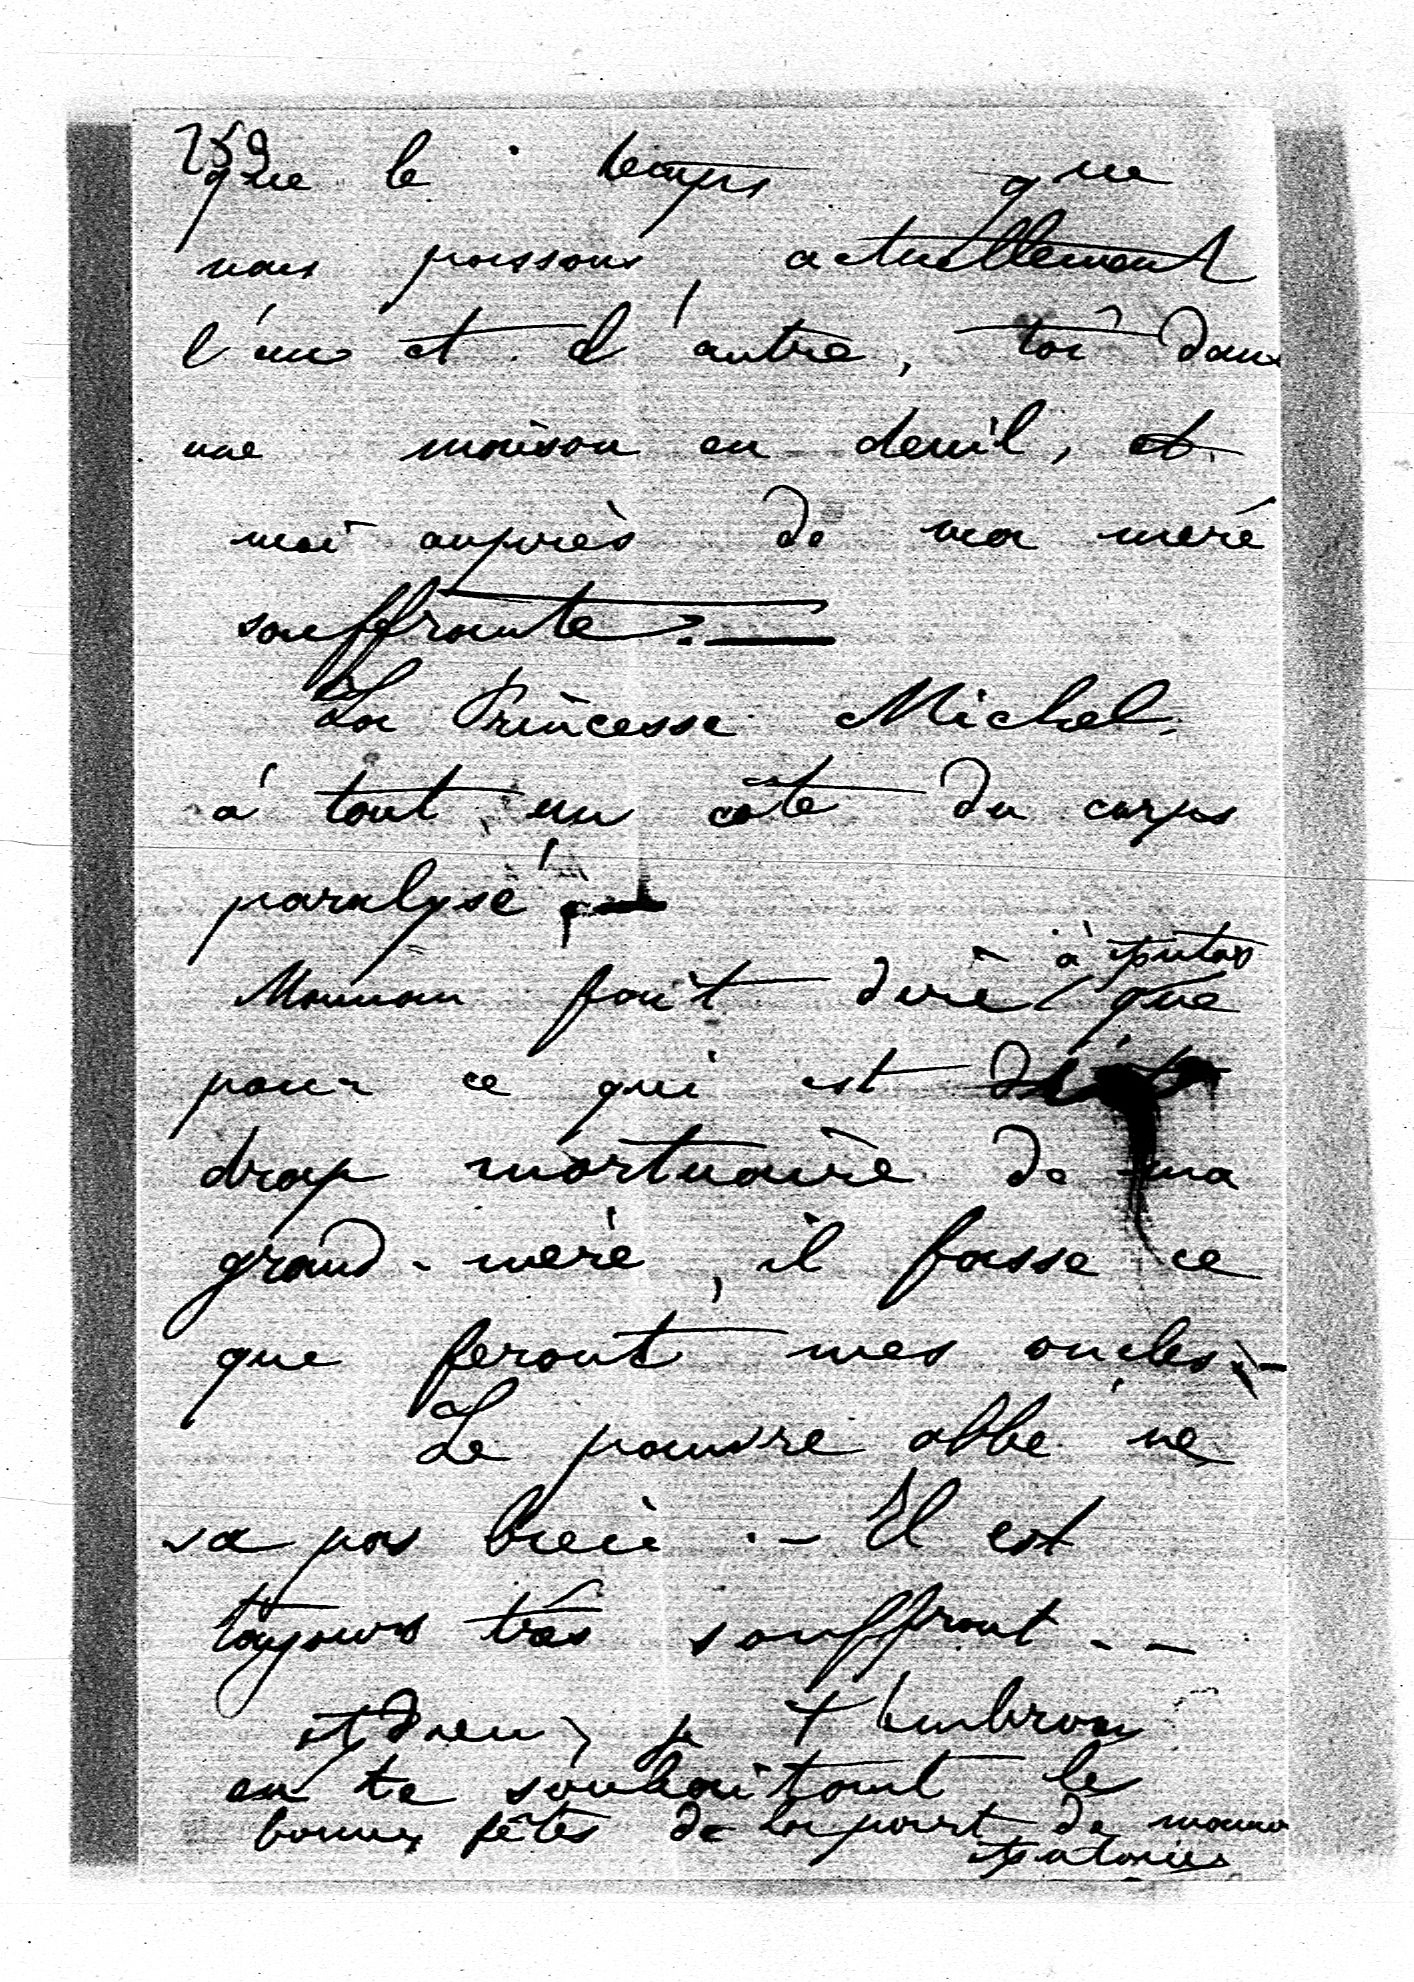 259
que le temps que
nous passons actuellement
l'un et d'autre, toi dans
une maison en deuil, et
moi auprès de ma mère
souffrante. —
La Princesse Michel
a tout un côté du corps
paralysé, —
Maman fait dire à que
pour ce qui est
drap mortuaire de ma
grand-mère, il fasse ce
que feront mes oncles. —
Le pauvre abbé ne
va pas bien. — Il est
toujours très souffrant. —
Adieu, je t'embrasse
en te souhaitant les
bonnes fêtes de la part de maman